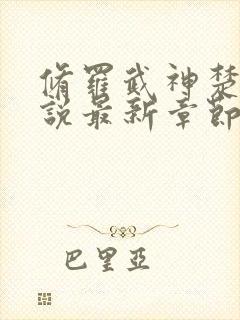 脩罷武神楚
說最新章節
巴里亞